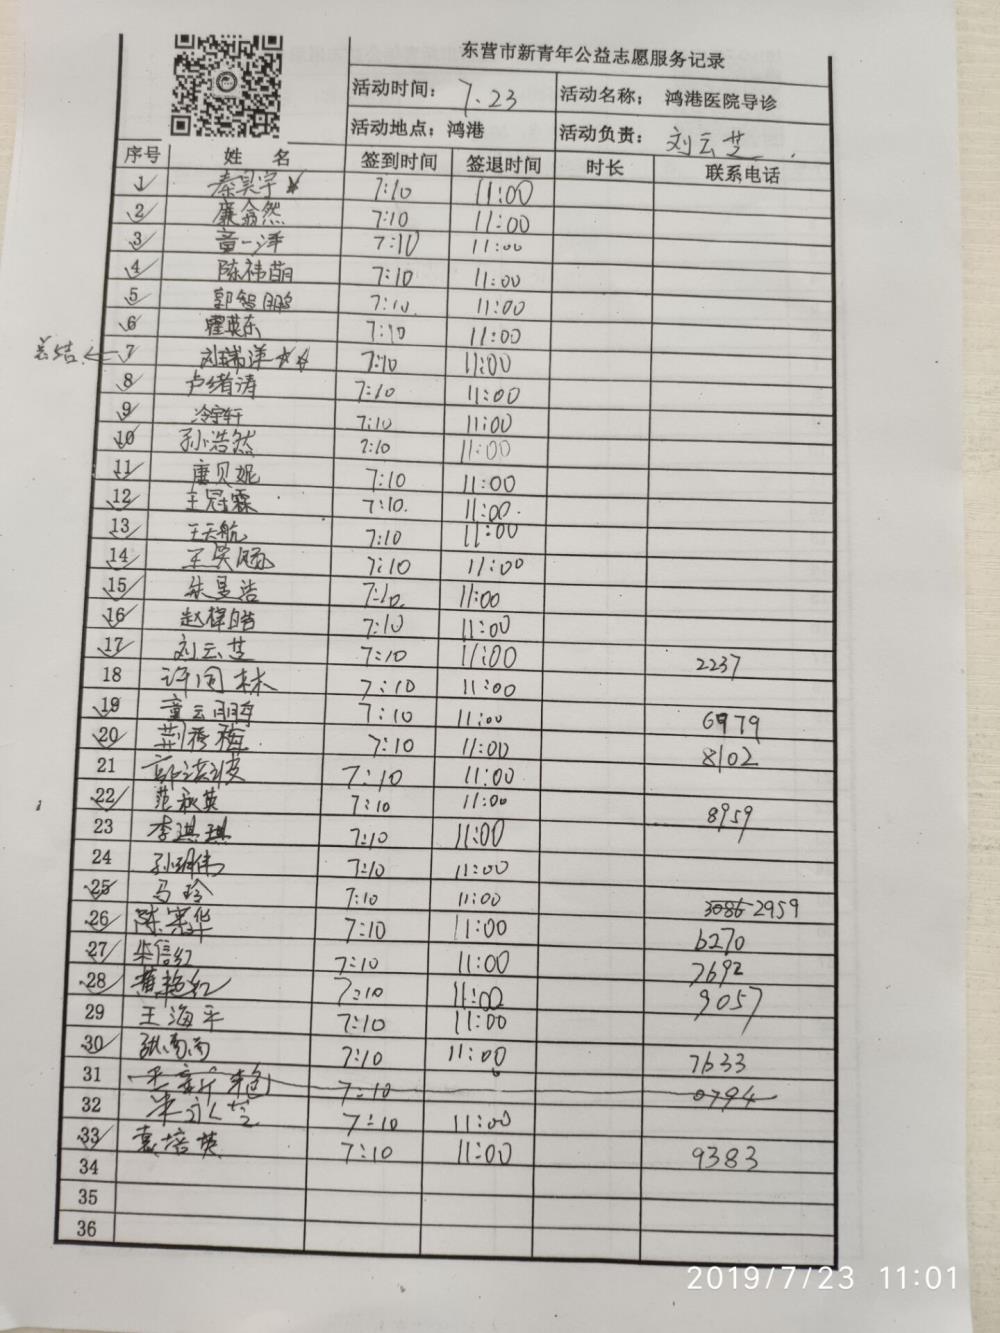 东营市新青年公益志愿服务记录
活动时间： 7.23 活动名称： 鸿港医院导诊
活动地点：鸿港 活动负责： 刘云芝
序号 姓 名 签到时间 签退时间 时长 联系电话
1 秦昊宇 7:10 11:00
2 廉翕然 7:10 11:00
3 童一洋 7:10 11:00
4 陈祎萌 7:10 11:00
5 郭智鹏 7:10 11:00
6 霍英东 7:10 11:00
总结 ← 7 刘瑞洋 7:10 11:00
8 卢绪涛 7:10 11:00
9 冷宇轩 7:10 11:00
10 孙浩然 7:10 11:00
11 唐贝妮 7:10 11:00
12 王冠霖 7:10 11:00
13 王天航 7:10 11:00
14 7:10 11:00
15 朱昱浩 7:10 11:00
16 赵梓皓 7:10 11:00
17 刘云芝 7:10 11:00 2237
18 许同林 7:10 11:00
19 童云鹏 7:10 11:00 6979
20 荆秀梅 7:10 11:00 8102
21 郭洪波 7:10 11:00
22 范秋英 7:10 11:00 8959
23 李琪琪 7:10 11:00
24 孙明伟 7:10 11:00
25 马玲 7:10 11:00 2959
26 陈寒华 7:10 11:00 6270
27 朱信红 7:10 11:00 7692
28 黄艳红 7:10 11:00 9057
29 王海平 7:10 11:00
30 张南南 7:10 11:00 7633
31 7:10 0794
32 7:10 11:00
33 袁培英 7:10 11:00 9383
34
35
36
2019/7/23 11:01